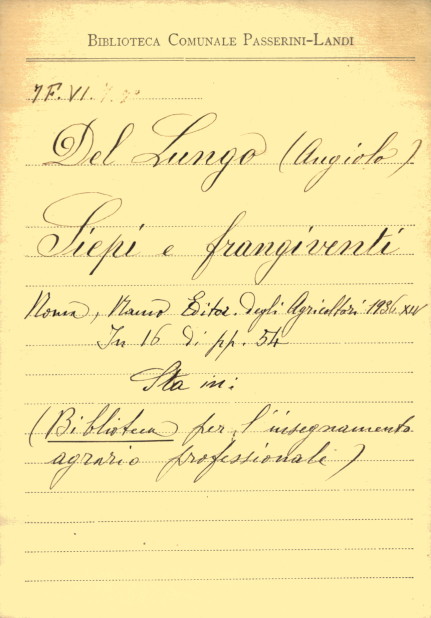 BIBLIOTECA COMUNALE PASSERINI-LANDI
7F.VI.
Del Lungo (Angiolo)
Siepi e frangiventi
Roma, Ramo Editor. degli Agricoltori 1936. XIV
In 16 di pp. 54
Sta in:
(Biblioteca per l'insegnamento
agrario professionale)